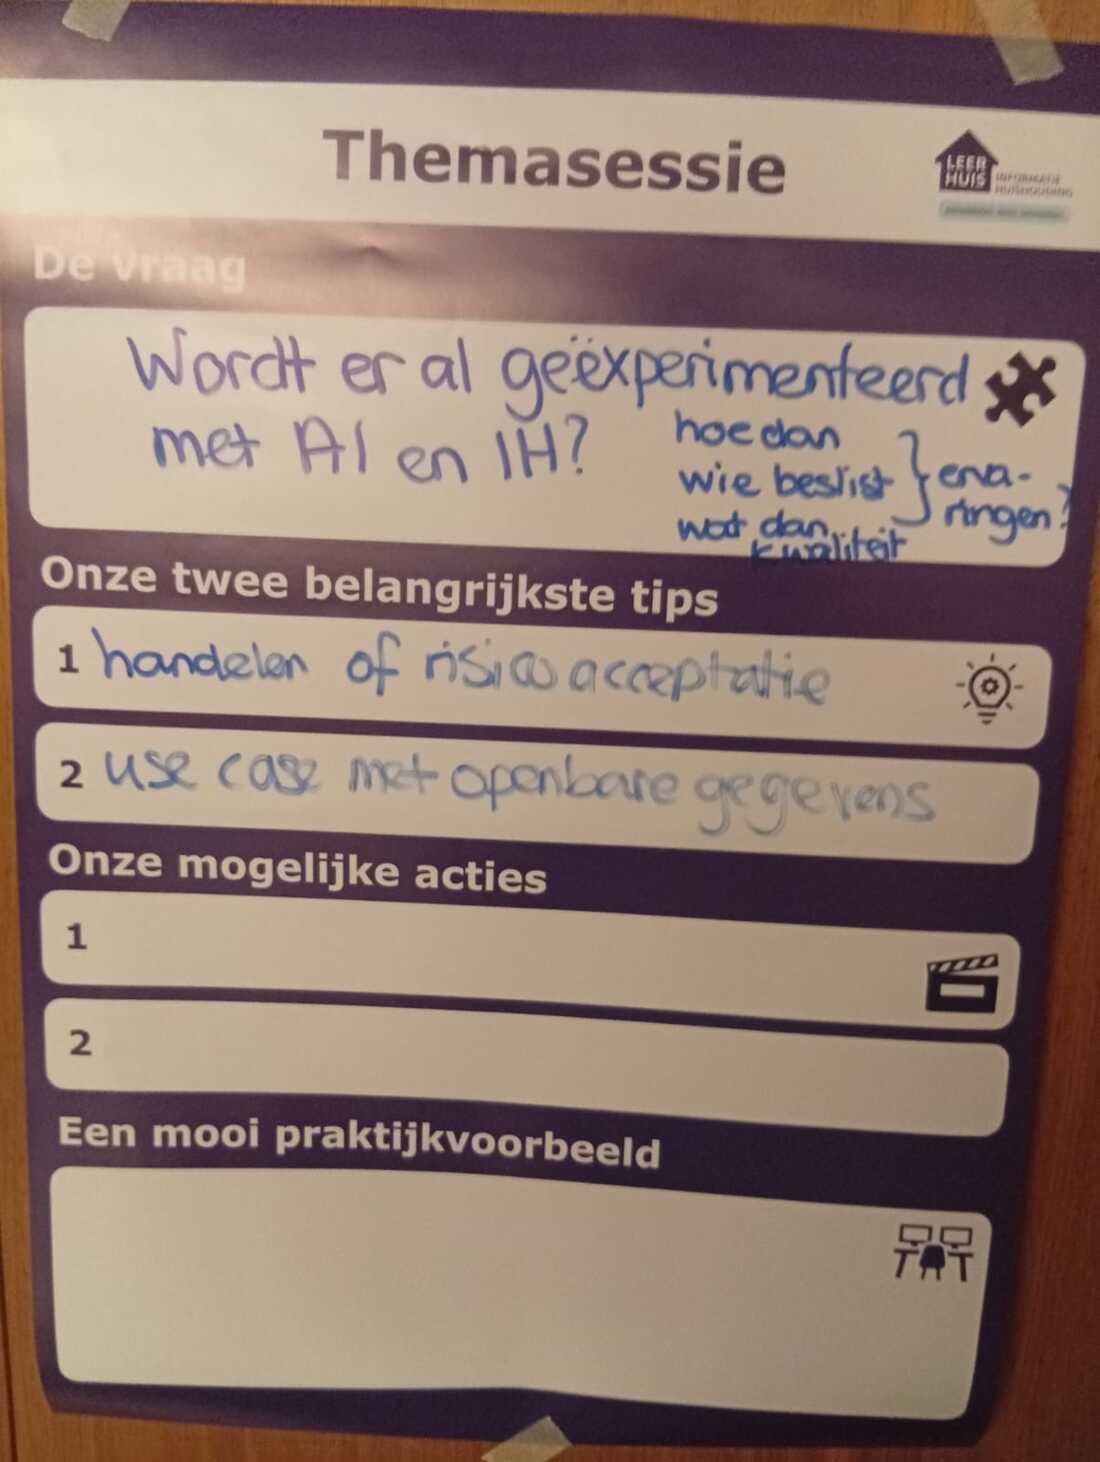 Themasessie
LEER
HUIS
INFORMATIE
HUISHOUDING
De vraag
Wordt er al geëxperimenteerd
met AI en IH?
hoe dan
wie beslist
wat dan
kwaliteit
} erva-
ringen?
Onze twee belangrijkste tips
1 handelen of risico acceptatie
2 use case met openbare gegevens
Onze mogelijke acties
1
2
Een mooi praktijkvoorbeeld